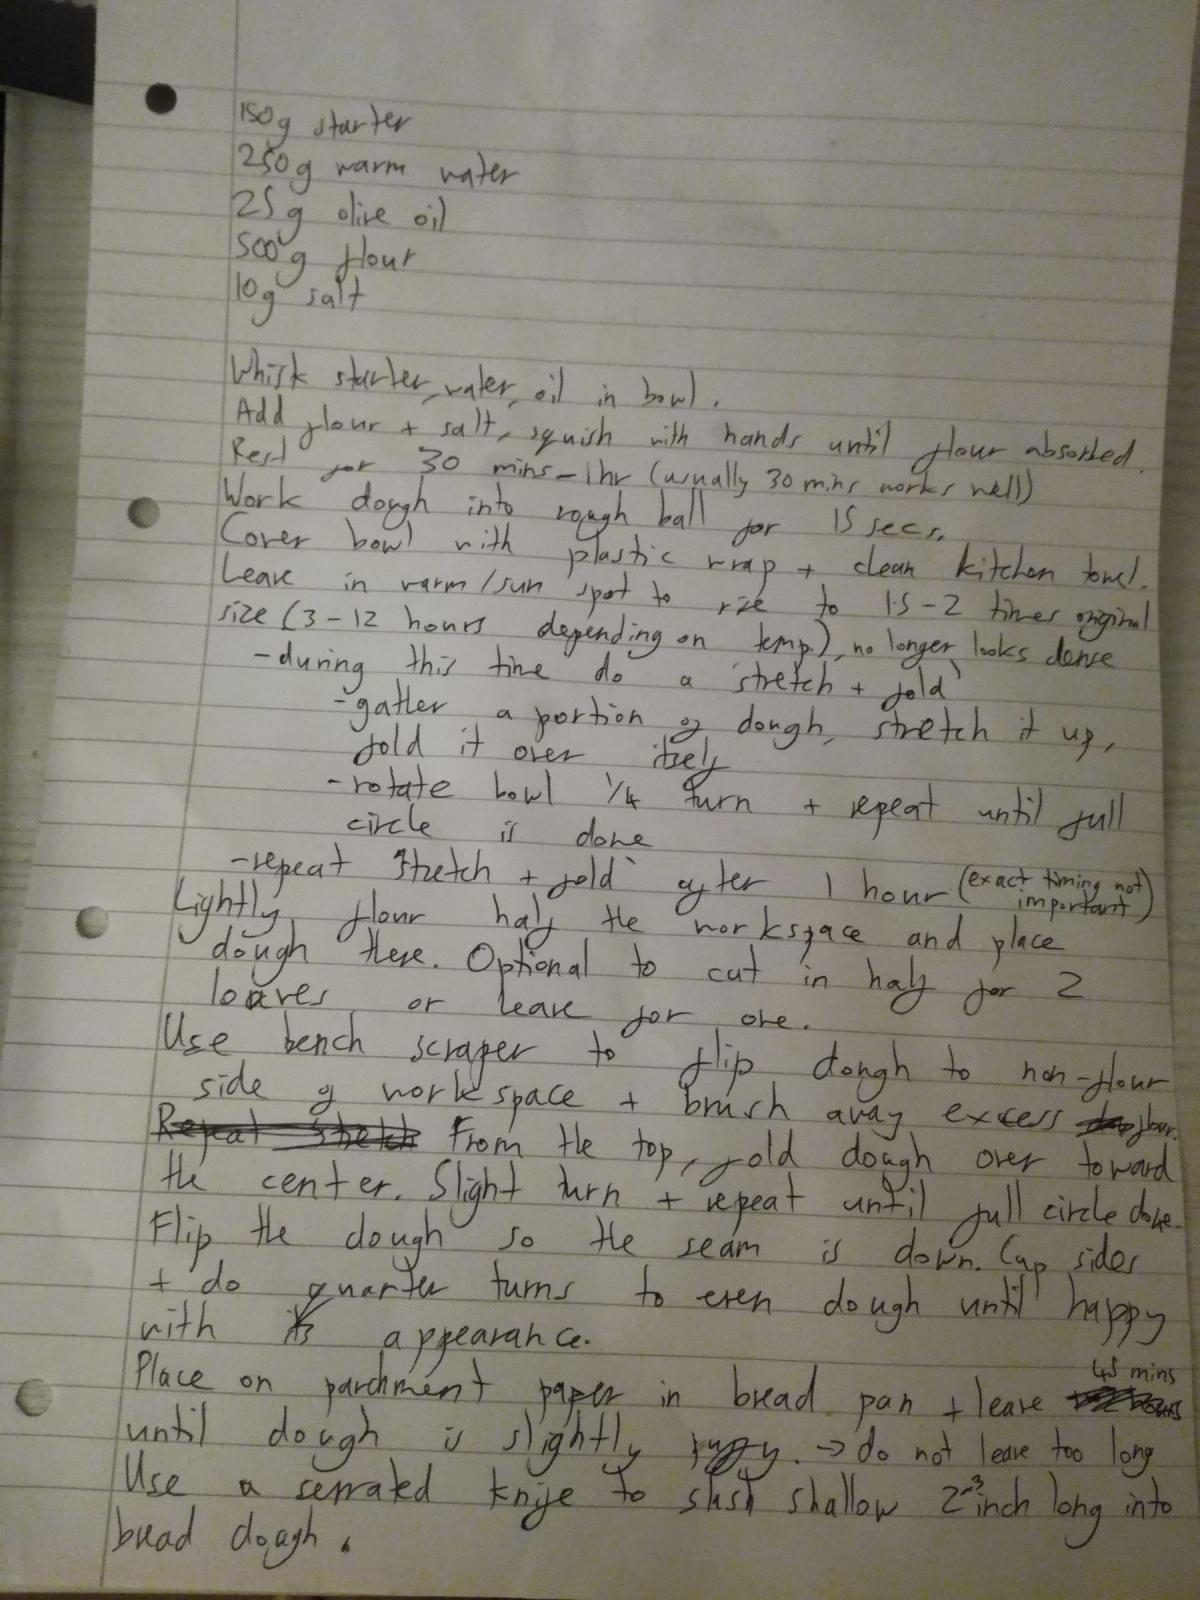 150g starter
250g warm water
25g olive oil
500g flour
10g salt
Whisk starter, water, oil in bowl.
Add flour + salt, squish with hands until flour absorbed.
Rest for 30 mins-1hr (usually 30 mins works well)
Work dough into rough ball for 15 secs.
Cover bowl with plastic wrap + clean kitchen towel.
Leave in warm/sun spot to rise to 1.5-2 times original
size (3-12 hours depending on temp.), no longer looks dense
-during this time do a 'stretch + fold'
-gather a portion of dough, stretch it up,
fold it over itself
-rotate bowl 1/4 turn + repeat until full
circle is done
-repeat 'stretch + fold' after 1 hour (exact timing not important)
Lightly flour half the workspace and place
dough there. Optional to cut in half for 2
loaves or leave for one.
Use bench scraper to flip dough to non-flour
side of workspace + brush away excess flour.
Repeat stretch From the top, fold dough over toward
the center. Slight turn + repeat until full circle done.
Flip the dough so the seam is down. Cup sides
+ do quarter turns to even dough until happy
with its appearance.
Place on parchment paper in bread pan + leave 45 mins
until dough is slightly puffy. → do not leave too long
Use a serrated knife to slash shallow 2-3 inch long into
bread dough.